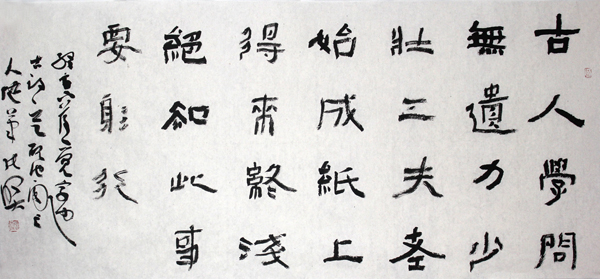 古人學問
無遺力少
壯工夫老
始成紙上
得來終淺
絕知此事
要躬行